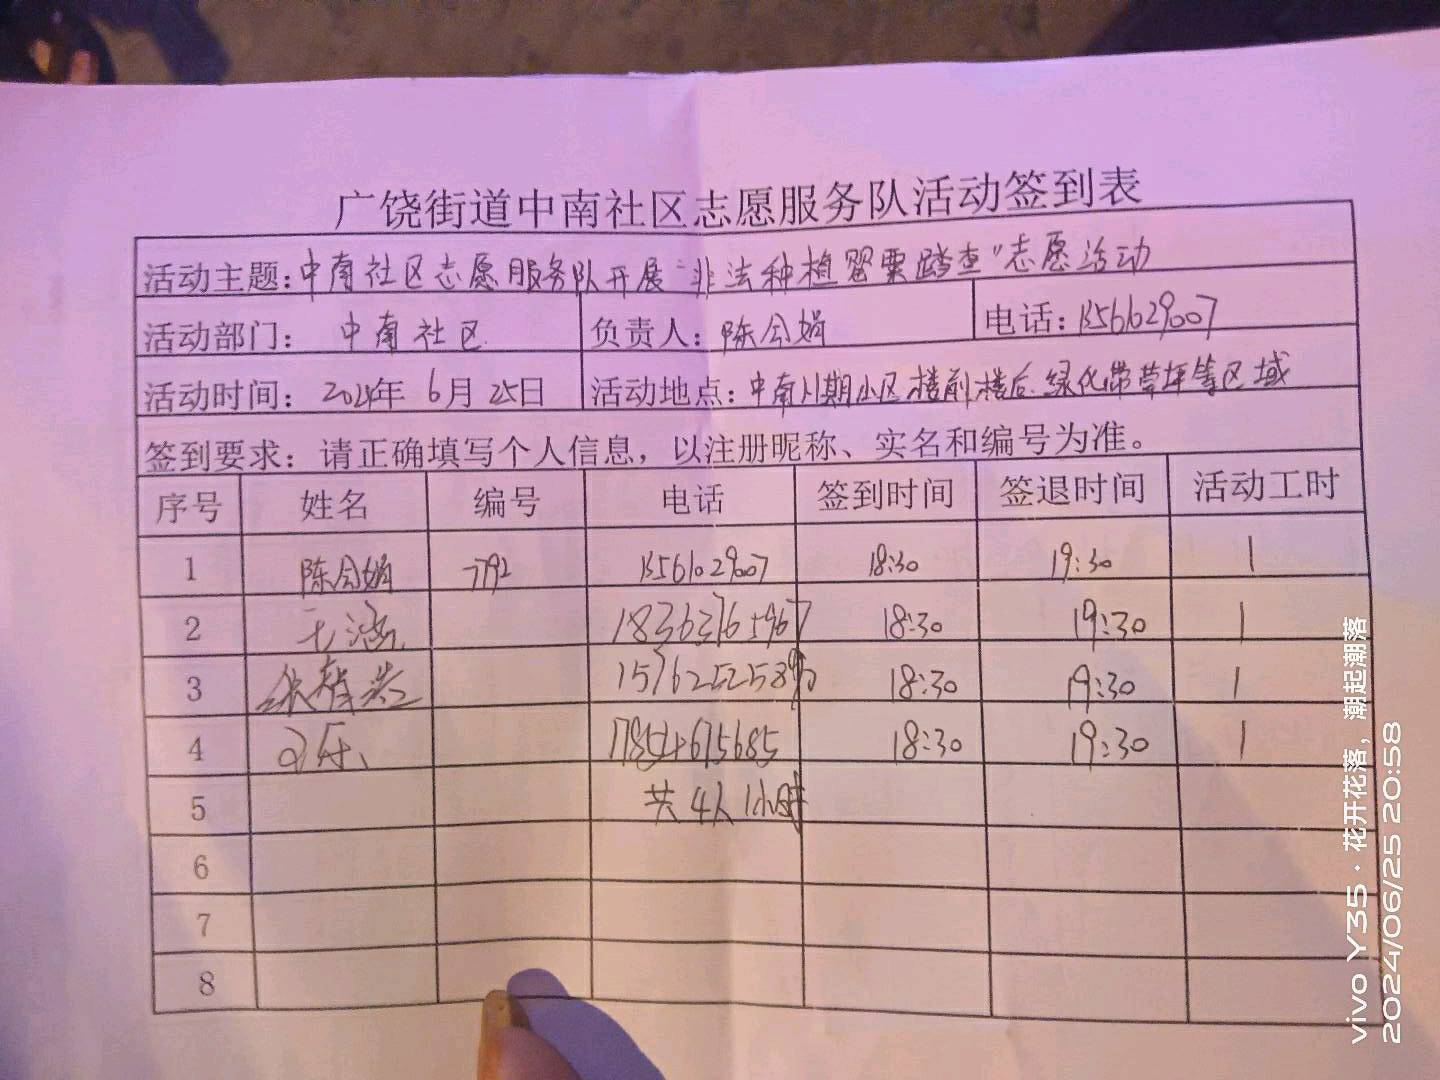 广饶街道中南社区志愿服务队活动签到表
活动主题：中南社区志愿服务队开展“非法种植罂粟踏查”志愿活动
活动部门： 中南社区 负责人：陈会娟 电话：13561029007
活动时间： 2024年 6月 25日 活动地点：中南小区楼前楼后绿化带草坪等区域
签到要求：请正确填写个人信息，以注册昵称、实名和编号为准。
序号 姓名 编号 电话 签到时间 签退时间 活动工时
1 陈会娟 7792 13561029007 18:30 19:30 1
2 18363765967 18:30 19:30 1
3 18:30 19:30 1
4 17854675685 18:30 19:30 1
5 共4人1小时
6
7
8
vivo Y35 · 花开花落，潮起潮落
2024/06/25 20:58